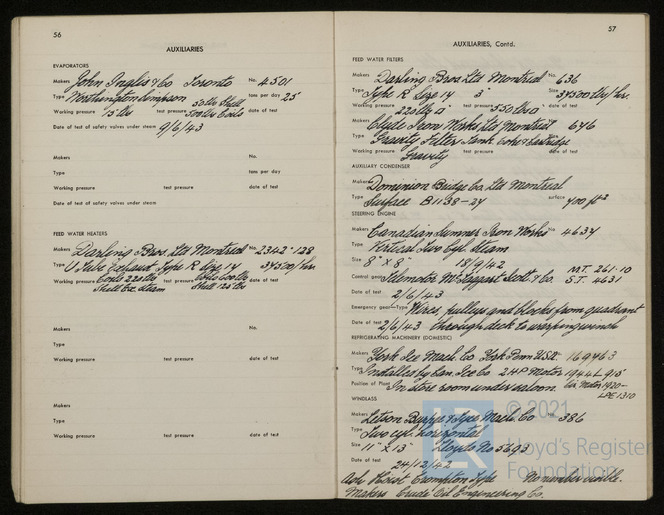 56
AUXILIARIES
EVAPORATORS
Makers John Inglis & Co Toronto No. 4501
Type Worthington Simpson tons per day 25
Working pressure 15 lbs test pressure 50 lbs Shell 500 lbs Coils date of test
Date of test of safety valves under steam 9/6/43
Makers No.
Type tons per day
Working pressure test pressure date of test
Date of test of safety valves under steam
FEED WATER HEATERS
Makers Darling Bros. Ltd Montreal No. 2342-128
Type U Tube Exhaust Type R Size 14 37500/hr.
Working pressure Coils 225 lbs Shell Ex. Steam test pressure Shell 125 lbs date of test
Makers No.
Type
Working pressure test pressure date of test
Makers
Type
Working pressure test pressure date of test
57
AUXILIARIES, Contd.
FEED WATER FILTERS
Makers Darling Bros. Ltd Montreal No. 636
Type Type R Size 14 3" Size 37500 lbs/hr.
Working pressure 220 lbs test pressure 550 lbs date of test
Makers Clyde Iron Works Ltd Montreal 646
Type Gravity Filter Tank. Coke & Cartridge Size
Working pressure Gravity test pressure date of test
AUXILIARY CONDENSER
Makers Dominion Bridge Co. Ltd Montreal
Type Surface B1138-24 surface 700 ft²
STEERING ENGINE
Makers Canadian Sumner Iron Works No. 4634
Type Vertical Two Cyl. Steam
Size 8" x 8" 18/9/42
Control gear Telemotor McTaggart Scott & Co. M.T. 261-10 S.T. 4631
Date of test 2/6/43
Emergency gear—Type Wires, pulleys and blocks from quadrant
Date of test 2/6/43 through deck to warping winch
REFRIGERATING MACHINERY (DOMESTIC)
Makers York Ice Mach. Co. York Penn U.S.A. 169463
Type Installed by Can. Ice Co. 2 H.P Motor 1944L915
Position of Plant In store room under saloon. Cir. Motor 1930-LPE1310
WINDLASS
Makers Letson Burpee & Tyee Mach. Co No. 386
Type Two cyl. horizontal
Size 11" x 13" Lloyds No 5693
Date of test 24/12/42
Ash Hoist Crompton Type No number visible.
Makers Crude Oil Engineering Co.
© 2021
LR
Lloyd's Register
Foundation